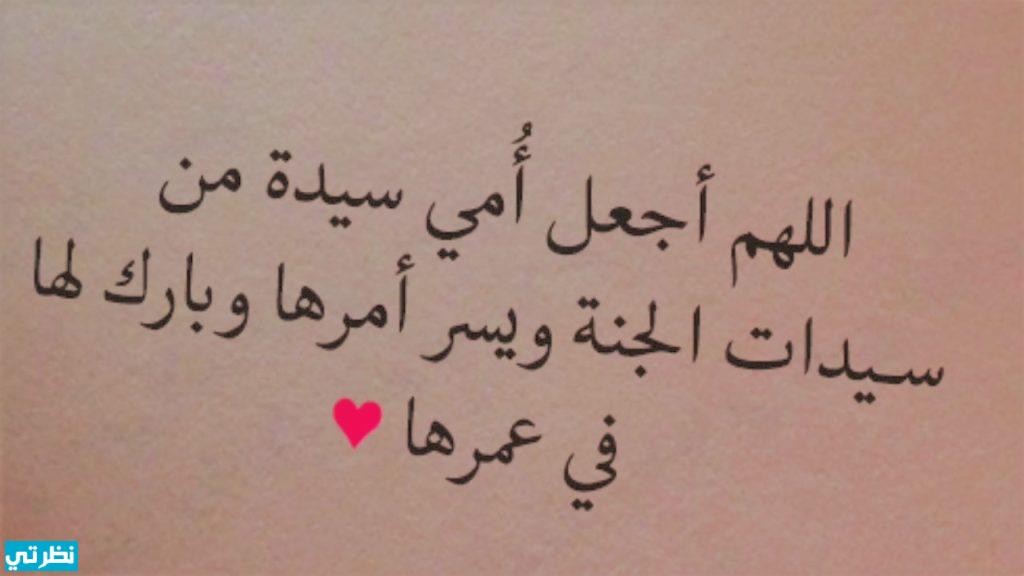 اللهم أجعل أُمي سيدة من
سيدات الجنة ويسر أمرها وبارك لها
في عمرها ♥
نظرتي